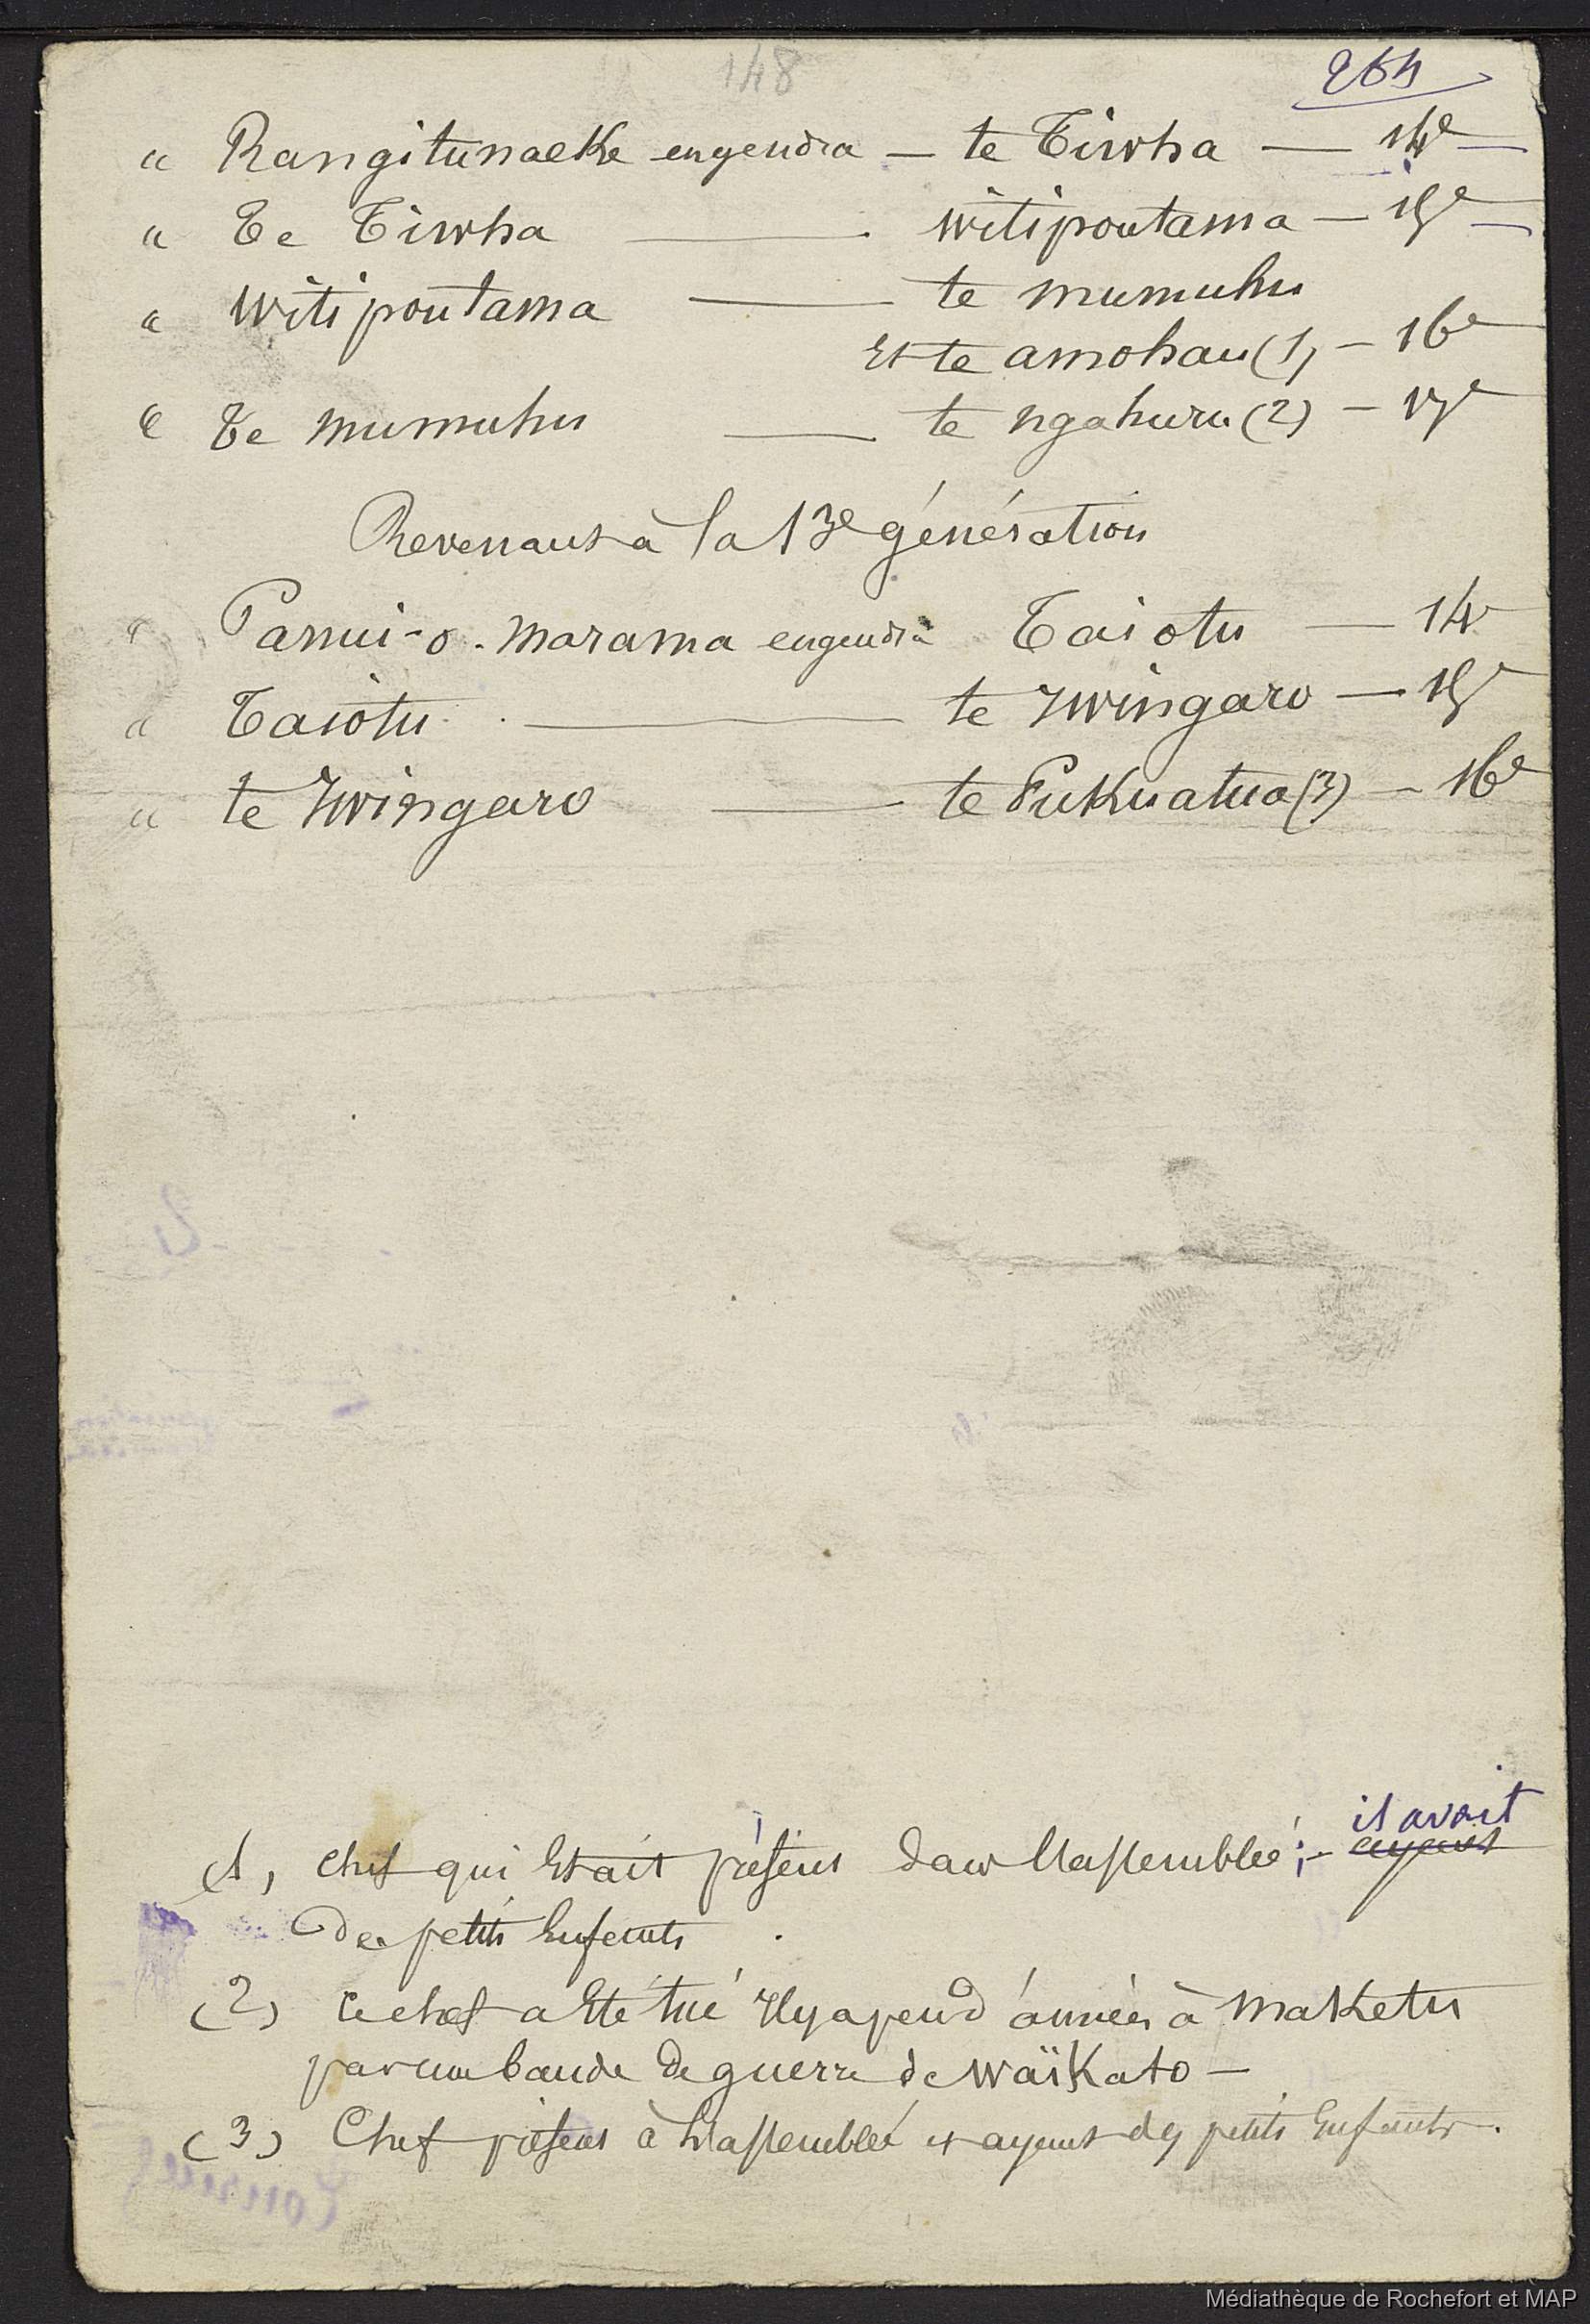 148
264
" Rangitunaeke engendra — te Tiwha — 14e —
" Te Tiwha — witipoutama — 15e —
" witipoutama — te mumuhu
Et te amohau (1) — 16e
" Te mumuhu — te ngahuru (2) — 17e
Revenant à la 13e génération
" Panui-o-marama engendra Taiotu — 14e
" Taiotu — te Iwingaro — 15e
" te Iwingaro — te Pukuatua (3) — 16e
(1) chef qui Etait présent dans l'assemblée; — il avait ayant
de petits Enfants.
(2) ce chef a Eté tué Il y a peu d'années à maketu
par une bande de guerre de Waïkato —
(3) Chef présent à l'assemblée et ayant des petits Enfants.
Médiathèque de Rochefort et MAP